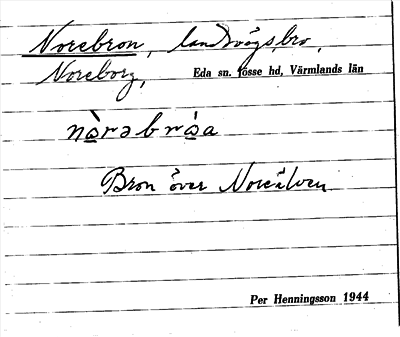 Norebron, landsvägsbro,
Noreborg, Eda sn. Jösse hd, Värmlands län
nò̱rəbrò̱a
Bron över Noreälven
Per Henningsson 1944